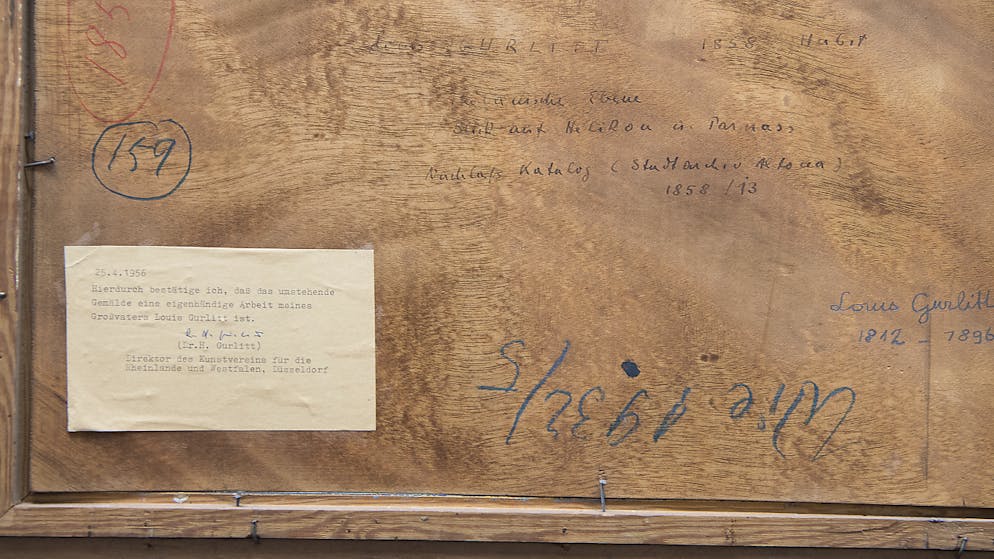 185
Louis GURLITT 1858 Herbst
Ebene
Blick auf Helikon u. Parnass
159
Nachlaß Katalog (Stadtarchiv Altona)
1858/13
25.4.1956
Hierdurch bestätige ich, daß das umstehende
Gemälde eine eigenhändige Arbeit meines
Großvaters Louis Gurlitt ist.
(Dr.H. Gurlitt)
Direktor des Kunstvereins für die
Rheinlande und Westfalen, Düsseldorf
Louis Gurlitt
1812 - 1896